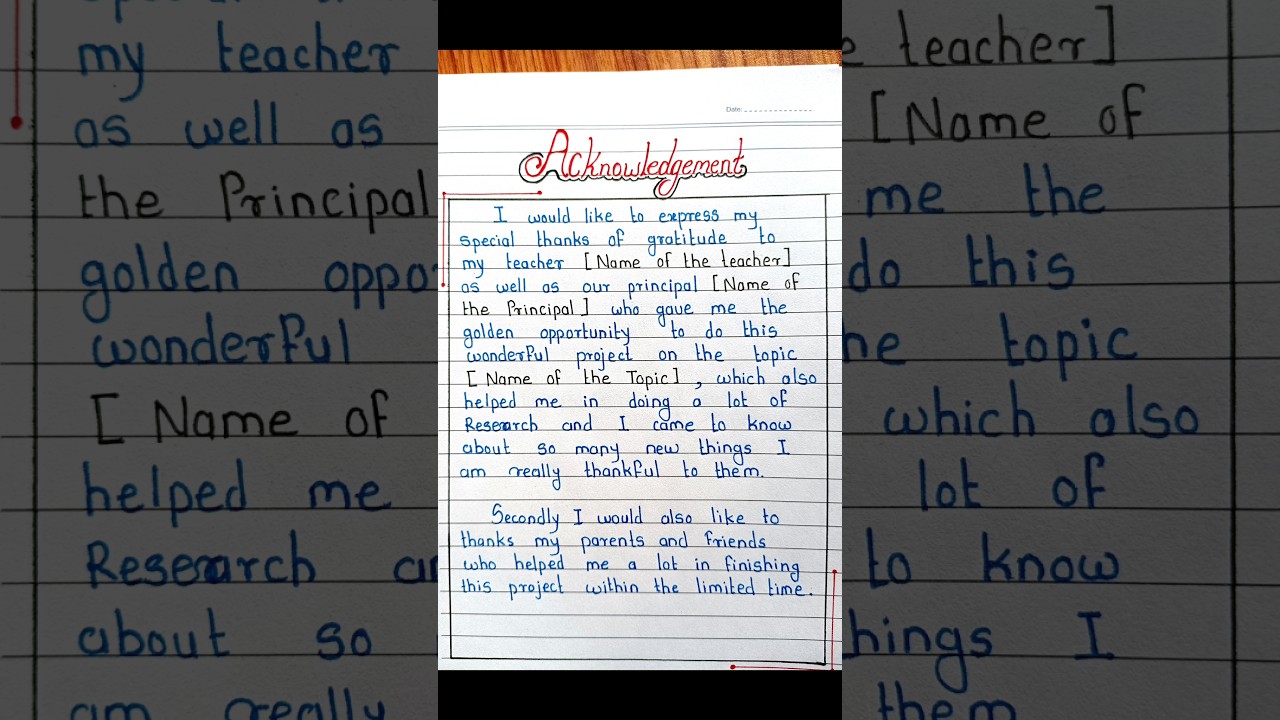 Date:
Acknowledgement
I would like to express my
special thanks of gratitude to
my teacher [Name of the teacher]
as well as our principal [Name of
the Principal] who gave me the
golden opportunity to do this
wonderful project on the topic
[Name of the Topic], which also
helped me in doing a lot of
Research and I came to know
about so many new things I
am really thankful to them.
Secondly I would also like to
thanks my parents and friends
who helped me a lot in finishing
this project within the limited time.